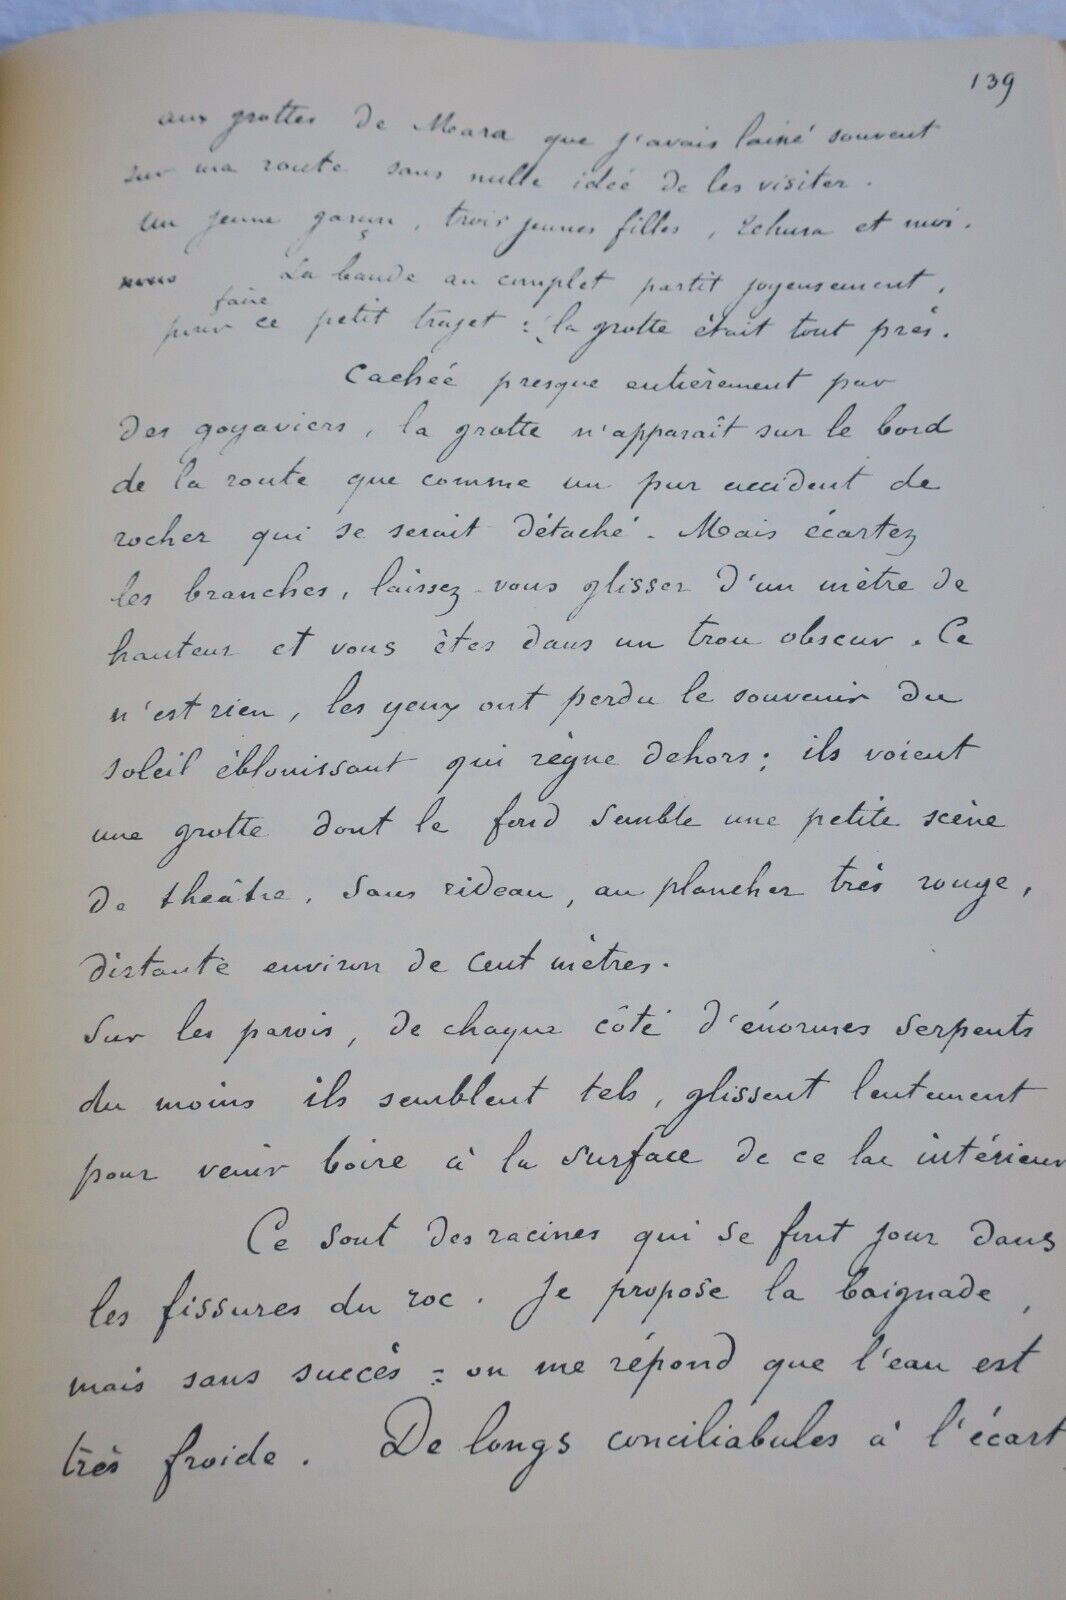 139
aux grottes de Mara que j'avais laissé souvent
sur ma route sans nulle idée de les visiter.
Un jeune garçon, trois jeunes filles, Tehura et moi.
La bande au complet partit joyeusement,
faire
pour ce petit trajet : la grotte était tout près.
Cachée presque entièrement par
des goyaviers, la grotte n'apparaît sur le bord
de la route que comme un pur accident de
rocher qui se serait détaché. Mais écartez
les branches, laissez-vous glisser d'un mètre de
hauteur et vous êtes dans un trou obscur. Ce
n'est rien, les yeux ont perdu le souvenir du
soleil éblouissant qui règne dehors; ils voient
une grotte dont le fond semble une petite scène
de théâtre, sans rideau, au plancher très rouge,
distante environ de cent mètres.
Sur les parois, de chaque côté d'énormes serpents
du moins ils semblent tels, glissent lentement
pour venir boire à la surface de ce lac intérieur
Ce sont des racines qui se font jour dans
les fissures du roc. Je propose la baignade,
mais sans succès : on me répond que l'eau est
très froide. De longs conciliabules à l'écart